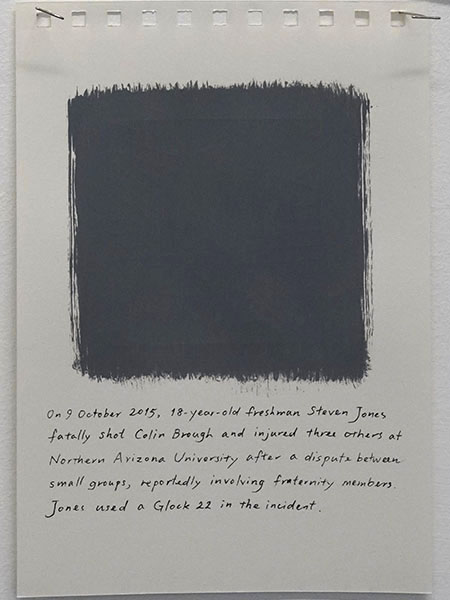 On 9 October 2015, 18-year-old freshman Steven Jones
fatally shot Colin Brough and injured three others at
Northern Arizona University after a dispute between
small groups, reportedly involving fraternity members.
Jones used a Glock 22 in the incident.